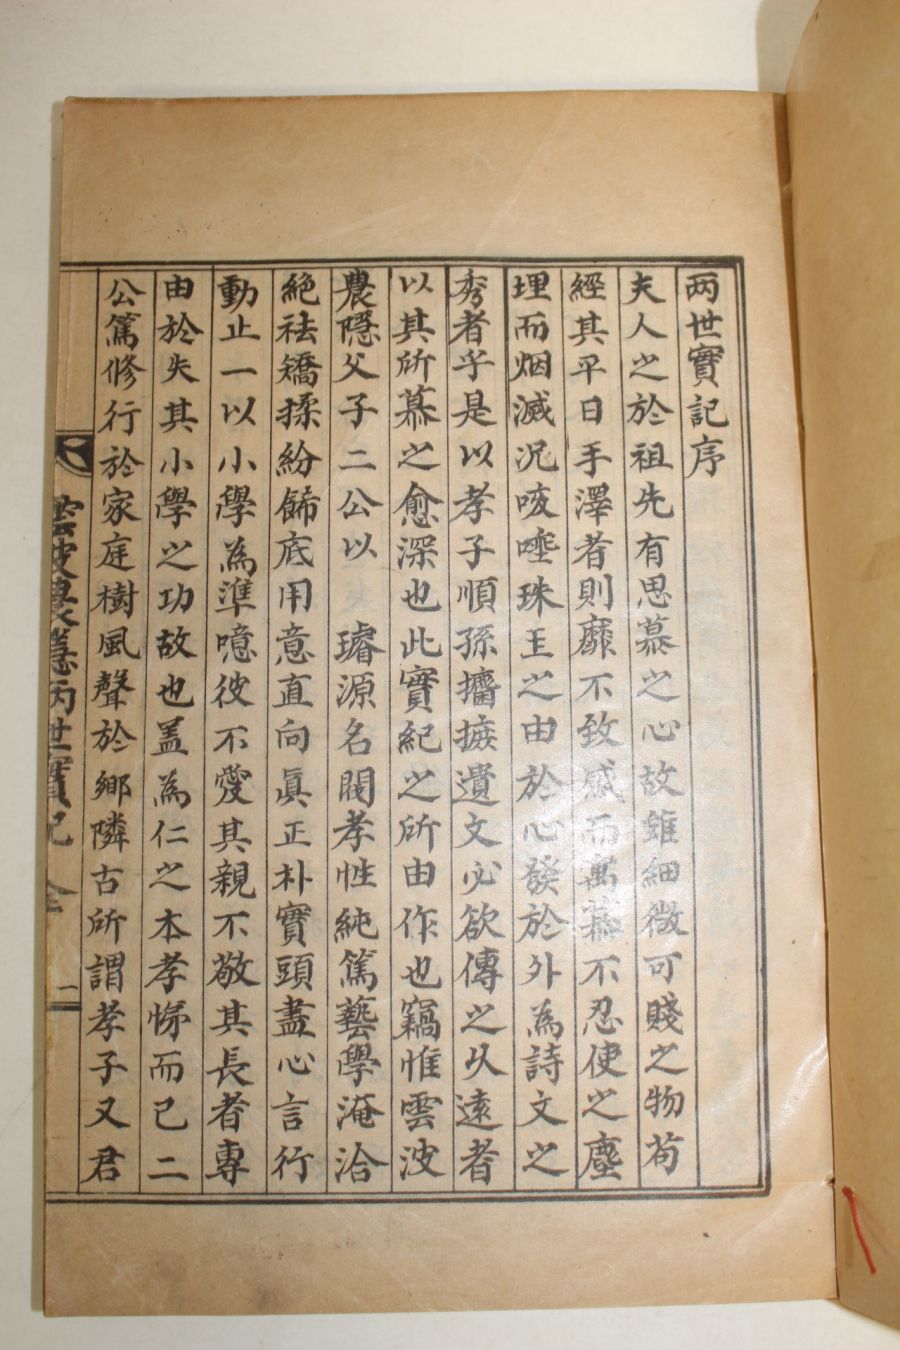 两世實記序
夫人之於祖先有思慕之心故雖細微可賤之物苟
經其平日手澤者則靡不致感而寓慕不忍使之塵
埋而烟滅况咳唾珠玉之由於心發於外為詩文之
秀者乎是以孝子順孫擂摭遺文必欲傳之久遠者
以其所慕之愈深也此實紀之所由作也竊惟雲波
農隱父子二公以璿源名閥孝性純篤藝學淹洽
絶祛矯揉紛餙底用意直向眞正朴實頭盡心言行
動止一以小學為準噫彼不愛其親不敬其長者專
由於失其小學之功故也盖為仁之本孝悌而已二
公篤修行於家庭樹風聲於鄉隣古所謂孝子又君
雲波農隱两世實記 全 一